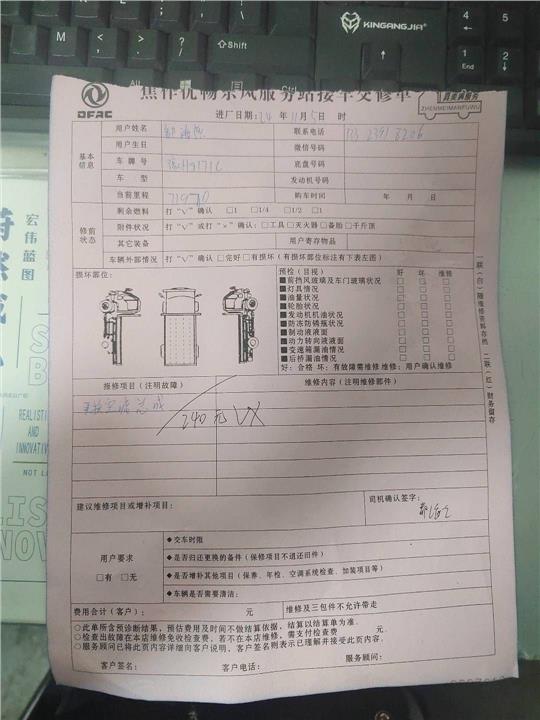 KINGANGJIA
M < > ? Shift
Alt Ctrl
4 5
1 End 2
DFAC
焦作优畅东风服务站接车交修单
ZHENMEIMANFUWU
进厂日期:24 年 11月 5日 时
基本信息
用户姓名 联系电话
用户生日 微信号码
车牌号 底盘号码
车 型 发动机号码
当前里程 购车时间 年 月 日
修前状态
剩余燃料 打“√”确认 □1 □1/4 □1/2 □1
附件状况 打“√”或打“×”确认:□工具□灭火器□备胎□千斤顶
其它装备 用户寄存物品
车辆外部情况 打“√”确认 □完好□有损坏(有损坏部位标注有下表左图)
损坏部位:
预检(目视) 好 坏 维修
■前挡风玻璃及车门玻璃状况 □ □ □
■灯具情况 □ □ □
■油量状况 □ □ □
■轮胎状况 □ □ □
■发动机机油状况 □ □ □
■防冻防锈瓶状况 □ □ □
■制动液液面 □ □ □
■动力转向液液面 □ □ □
■变速箱漏油情况 □ □ □
■后桥漏油情况 □ □ □
好:合格 坏:有故障需维修维修:用户确认维修
报修项目(注明故障) 维修内容(注明维修部件)
更换空滤总成
240元 VX
建议维修项目或增补项目:
司机确认签字:
用户要求
□有 □无
◆交车时限
◆是否归还更换的备件(保修项目不退还旧件)
◆是否增补其他项目(保养、年检、空调系统检查、加装项目等)
◆车辆是否需要清洁:
费用合计(客户): 元 维修及三包件不允许带走
○此单所含预诊断结果,预估费用及时间不做结算依据,结算以结算单为准.
○检查出故障在本店维修免收检查费,若不在本店维修,需支付检查费 元.
○服务顾问已将此页内容详细向客户说明,客户签名则表示已理解并接受此页内容.
服务顾问:
客户签名: 客户电话:
一联(白)随维修资料存档 二联(红)财务留存
宏伟蓝图
REALISTIC
AND
INNOVATIVE